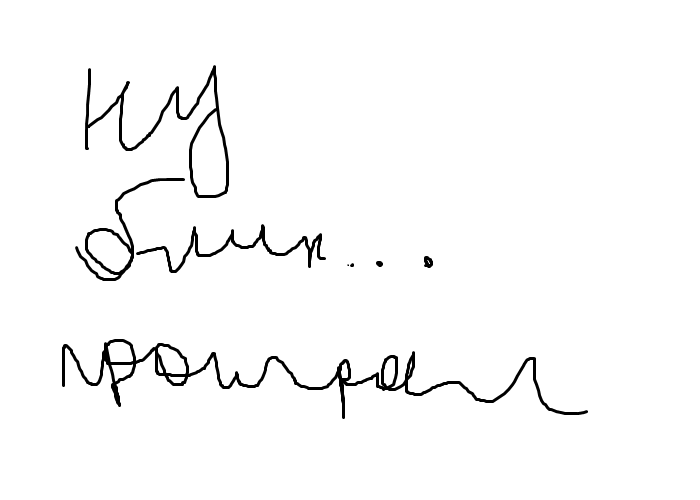 ну
блин...
проиграл